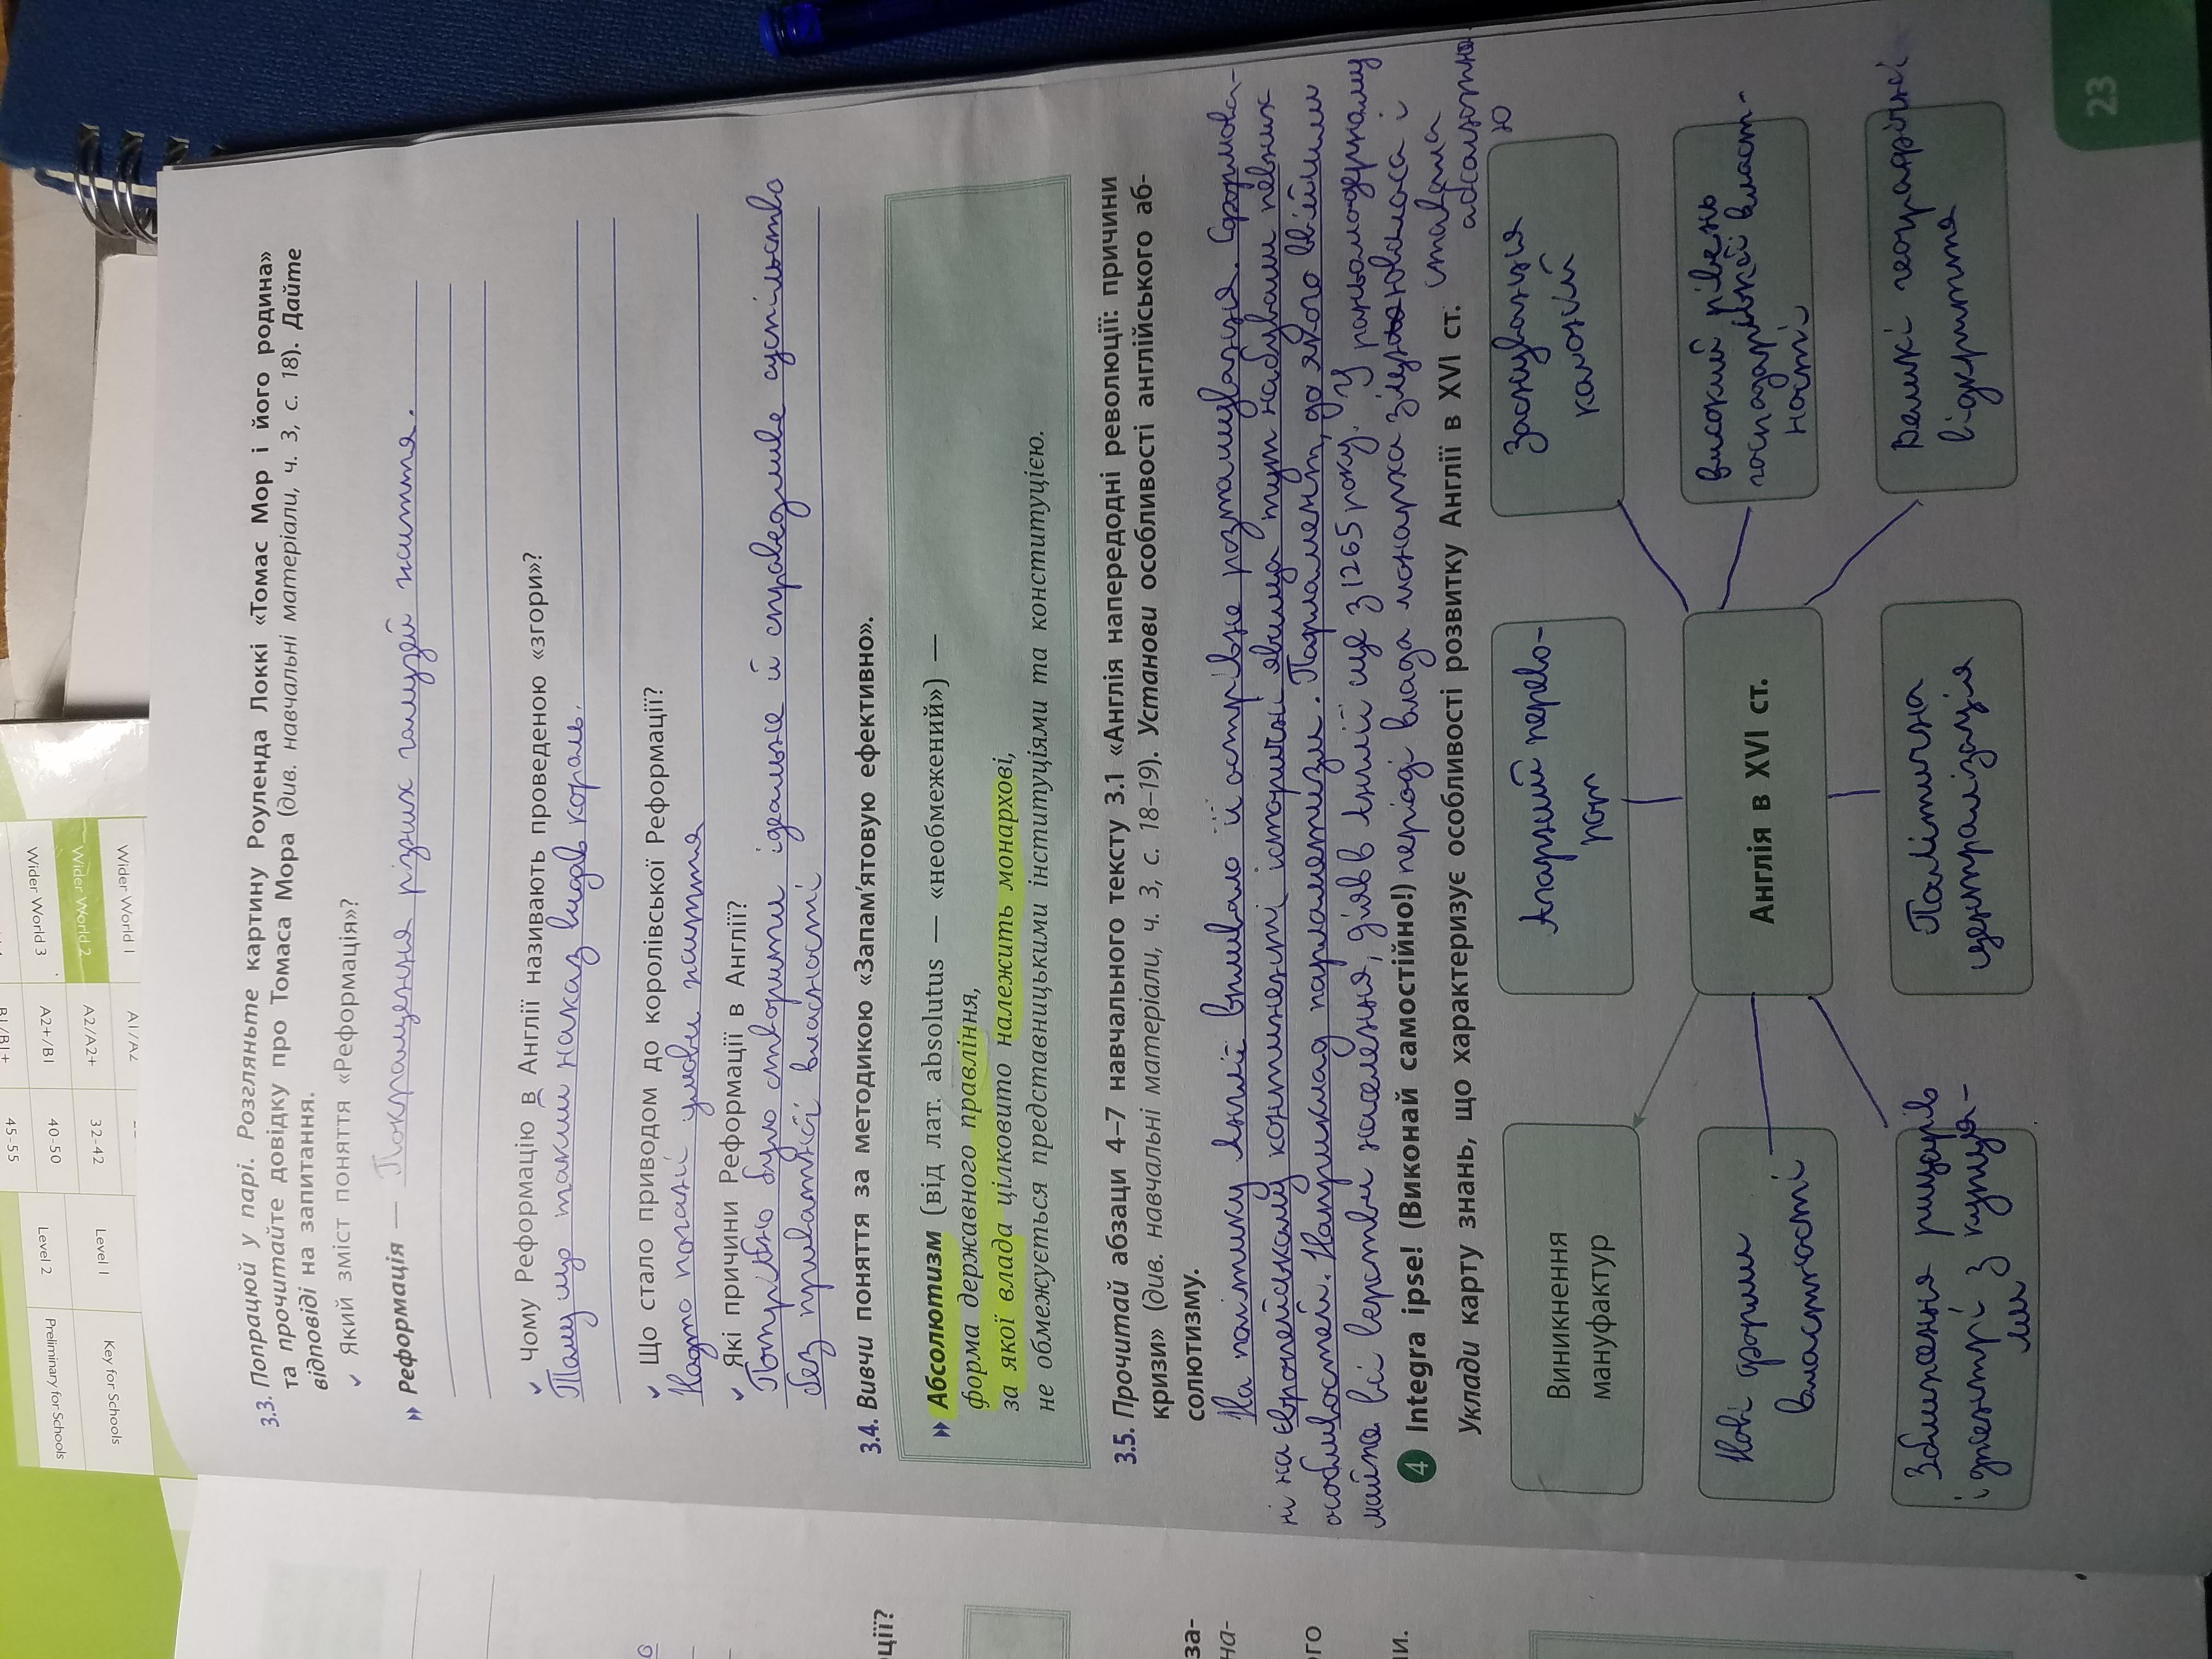 3.3. Попрацюй у парі. Розгляньте картину Роуленда Локкі «Томас Мор і його родина»
та прочитайте довідку про Томаса Мора (див. навчальні матеріали, ч. 3, с. 18). Дайте
відповіді на запитання.
✓ Який зміст поняття «Реформація»?
Реформація — Покращення різних галузей життя.
✓ Чому Реформацію в Англії називають проведеною «згори»?
Тому що такий наказ видав король.
✓ Що стало приводом до королівської Реформації?
Надто погані умови життя
✓ Які причини Реформації в Англії?
Потрібно було створити ідеальне й справедливе суспільство
без приватної власності
3.4. Вивчи поняття за методикою «Запам'ятовую ефективно».
Абсолютизм (від лат. absolutus — «необмежений») —
форма державного правління,
за якої влада цілковито належить монархові,
не обмежується представницькими інституціями та конституцією.
3.5. Прочитай абзаци 4–7 навчального тексту 3.1 «Англія напередодні революції: причини
кризи» (див. навчальні матеріали, ч. 3, с. 18–19). Установи особливості англійського аб-
солютизму.
На політику Англії впливало її острівне розташування. Сформова-
ні на європейському континенті історичні явища тут набували певних
особливостей. Наприклад парламентизм. Парламент, до якого ввійшли
майже всі верстви населення, діяв в Англії ще з 1265 року. У ранньомодерному
періоді влада монарха зміцнювалася і
ставала
абсолютно
ю
4 Integra ipse! (Виконай самостійно!)
Уклади карту знань, що характеризує особливості розвитку Англії в XVI ст.
Виникнення
мануфактур
Аграрний перево-
рот
Заснування
колоній
Нові форми
власності
Англія в XVI ст.
високий рівень
господарської власт-
ності
Зближення рицарів
і джентрі з купця-
ми
Політична
централізація
Великі географічні
відкриття
23
Wider World 1
A1/A2
Level 1
Key for Schools
Wider World 2
A2/A2+
32-42
Wider World 3
A2+/B1
40-50
Level 2
Preliminary for Schools
B1/B1+
45-55
ції?
за-
на-
ого
ми.